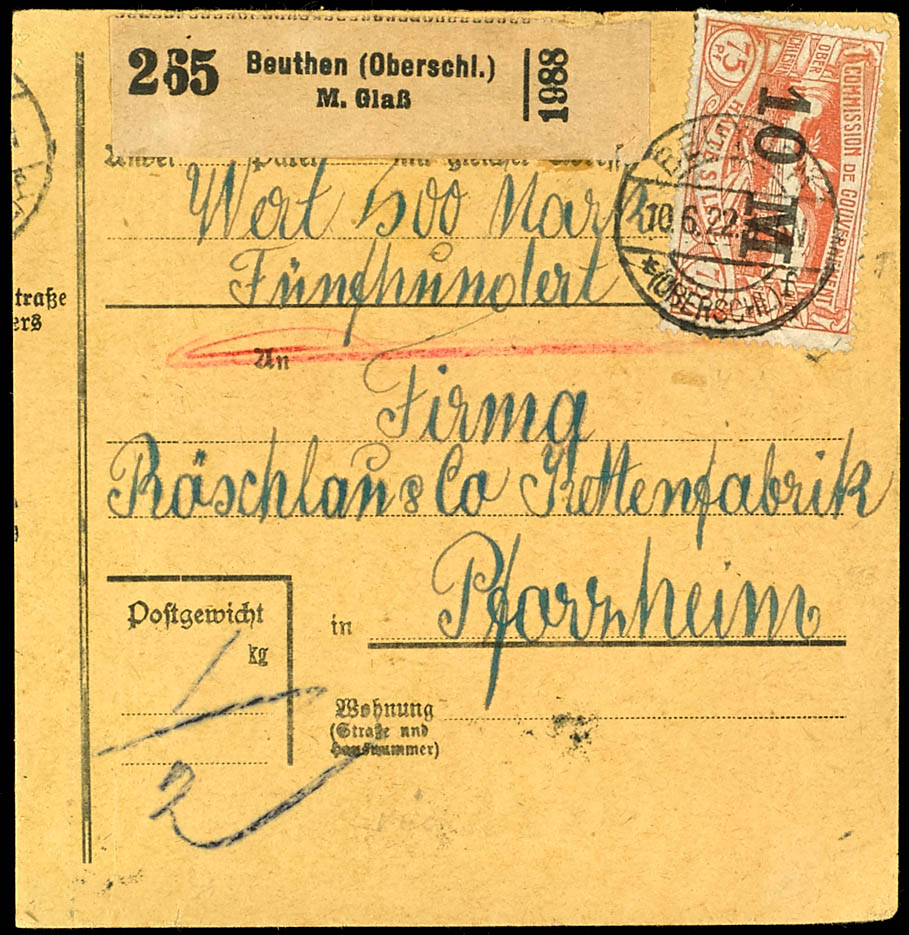 265 Beuthen (Oberschl.) 1988
M. Glaß
75 P
COMMISSION DE GOUVERNEMENT
10 M
10.6.22
*(OBERSCHL.)*
Wert 500 Mark
Fünfhundert
traße
ers
An
Firma
Räschlau & Co Kettenfabrik
Postgewicht
kg
1/2
in
Pforzheim
Wohnung
(Straße und
Hausnummer)